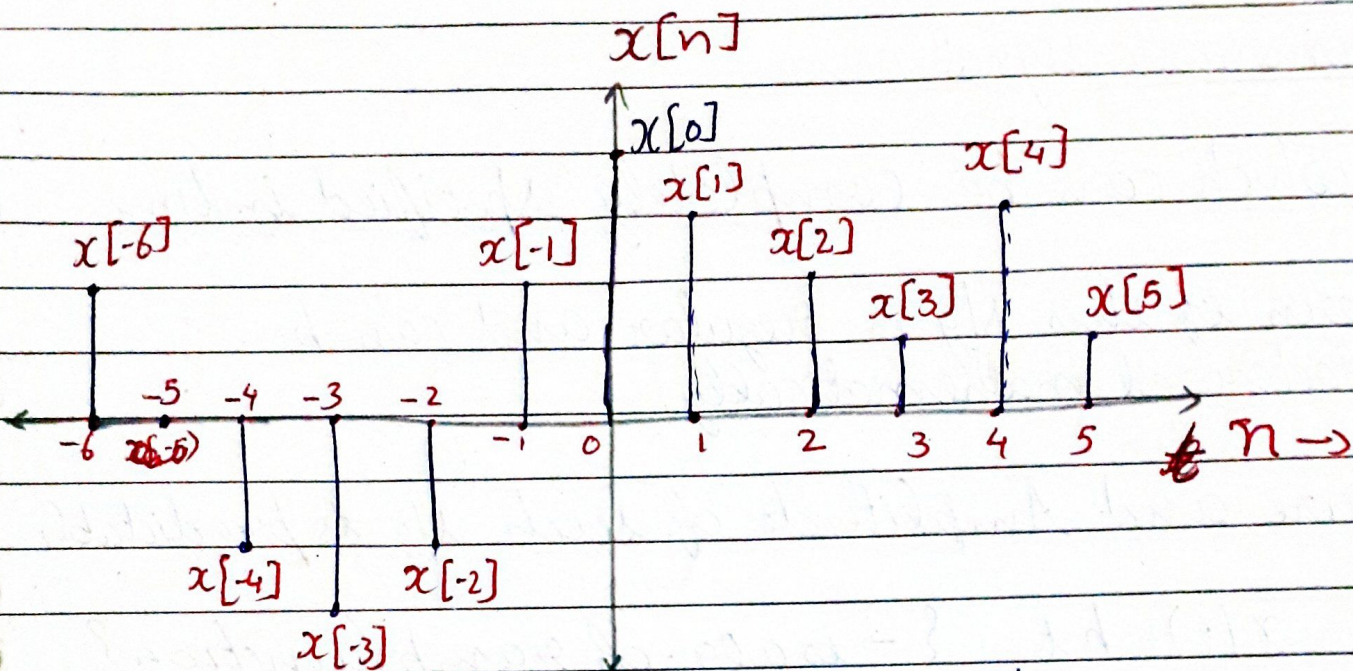 x[n]
x[0]
x[4]
x[1]
x[-6]
x[-1]
x[2]
x[3]
x[5]
-5 -4 -3 -2
-6 -1 0 1 2 3 4 5 n →
x[-4] x[-2]
x[-3]